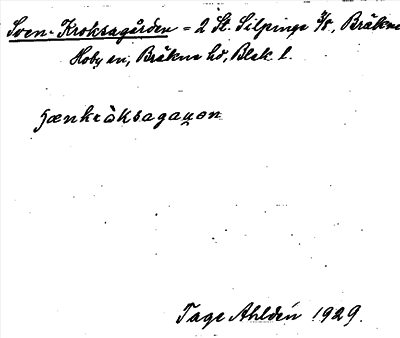 Sven-Kroksagården = 2 St. Silpinge 3/8, Bräkne
Hoby sn, Bräkne hd, Blek l.
Tage Ahldén 1929.